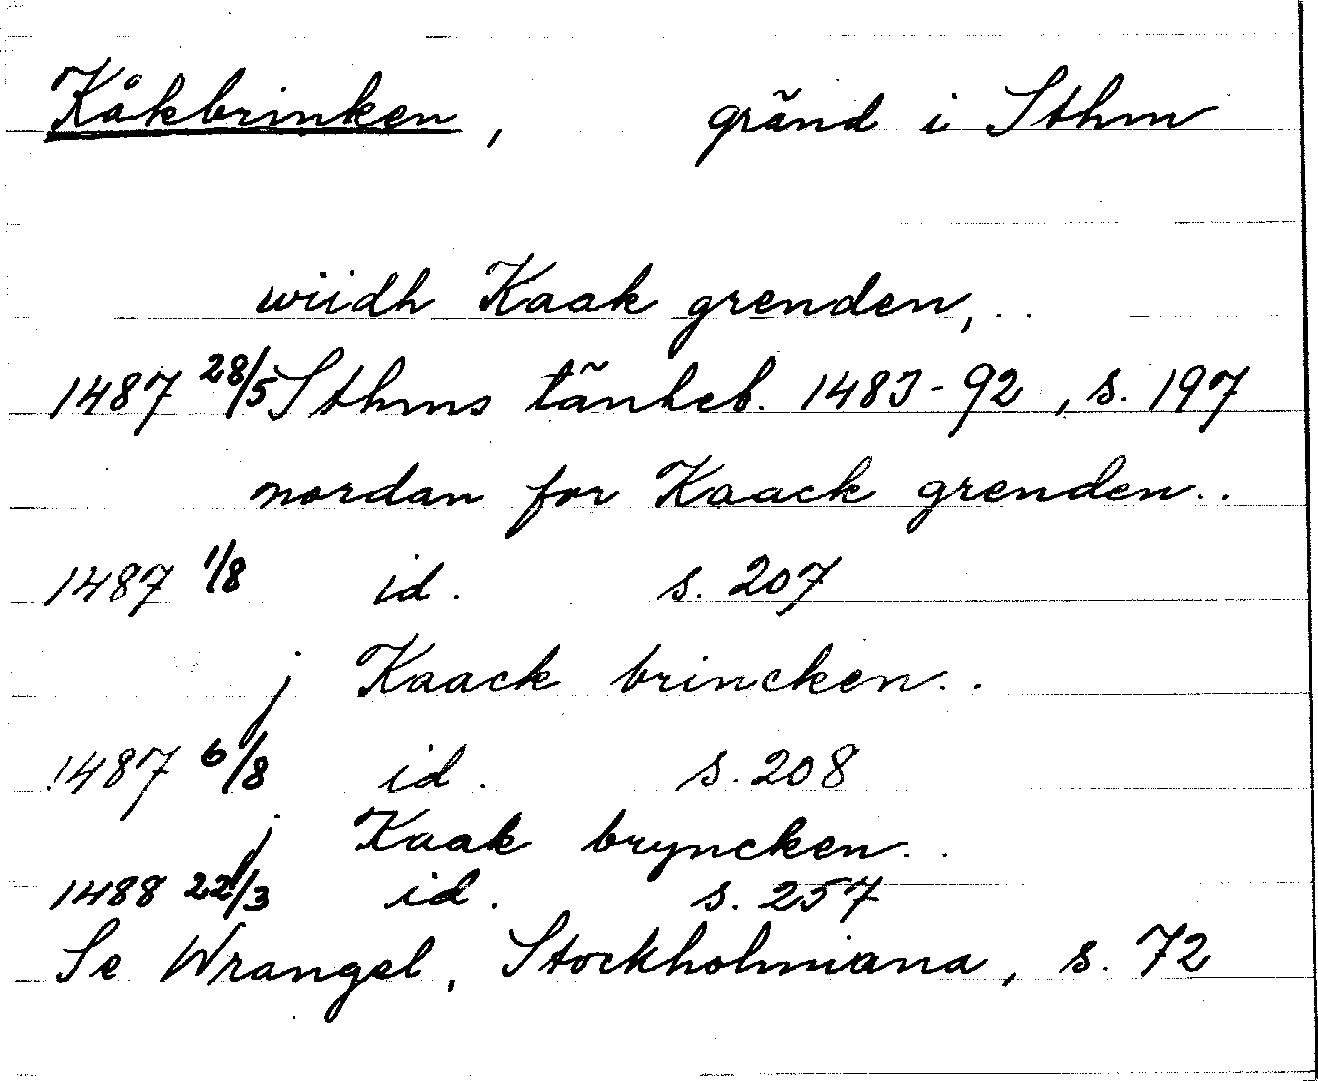 Kåkbrinken, gränd i Sthm
wiidh Kaak grenden, ..
1487 28/5 Sthms tänkeb. 1483-92, s. 197
nordan for Kaack grenden..
1487 1/8 id. s. 207
j Kaack brincken..
1487 6/8 id. s. 208
j Kaak bryncken..
1488 22/3 id. s. 257
Se Wrangel, Stockholmiana, s. 72